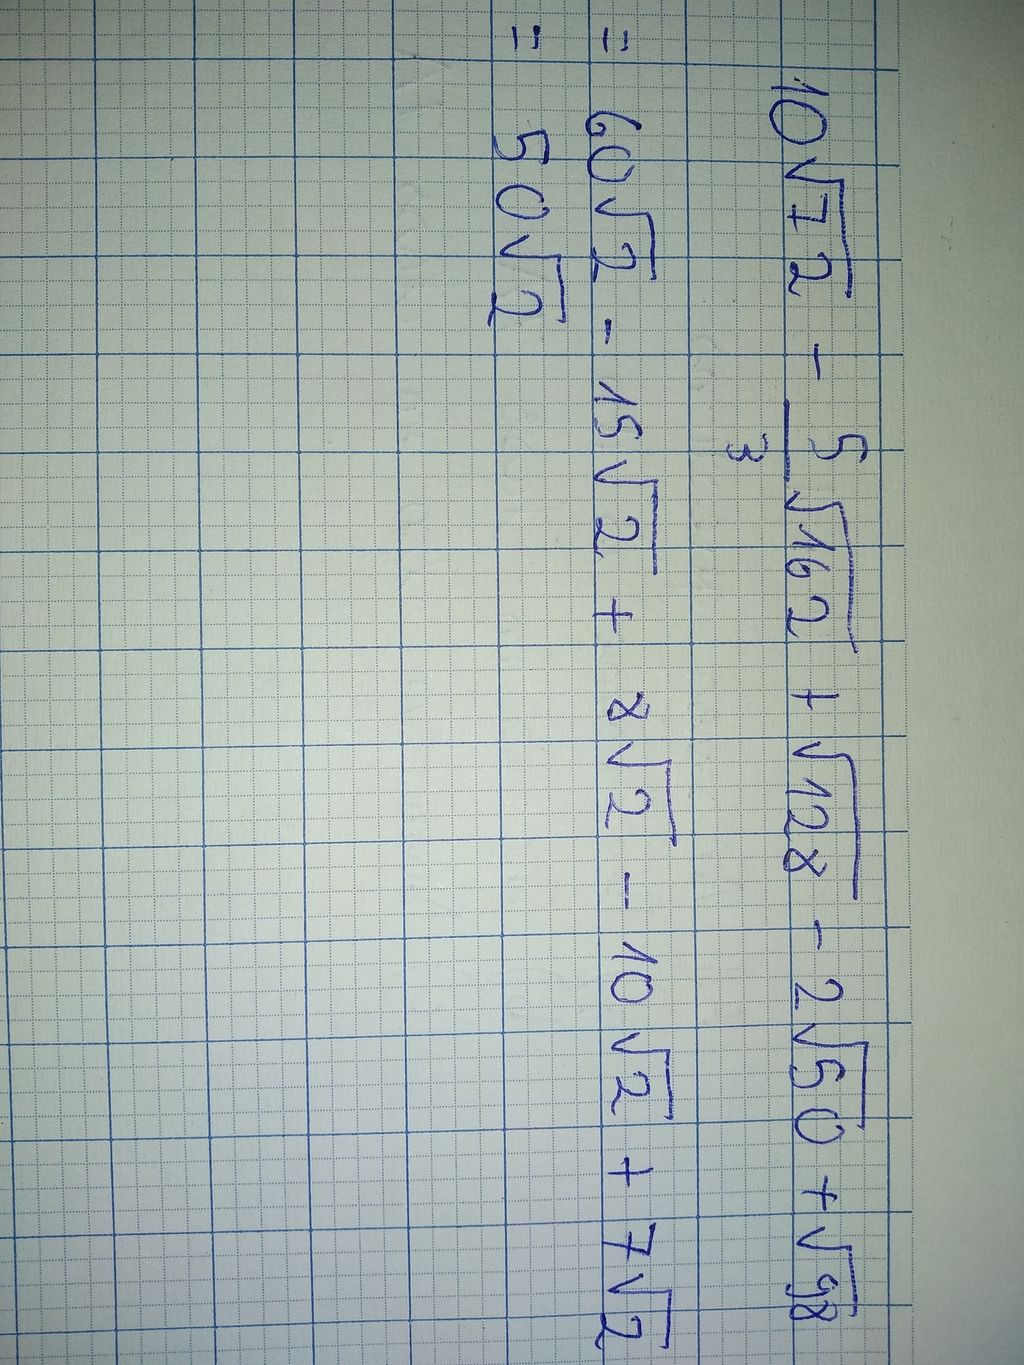 10√72 - 5/3 √162 + √128 - 2√50 + √98
= 60√2 - 15√2 + 8√2 - 10√2 + 7√2
= 50√2